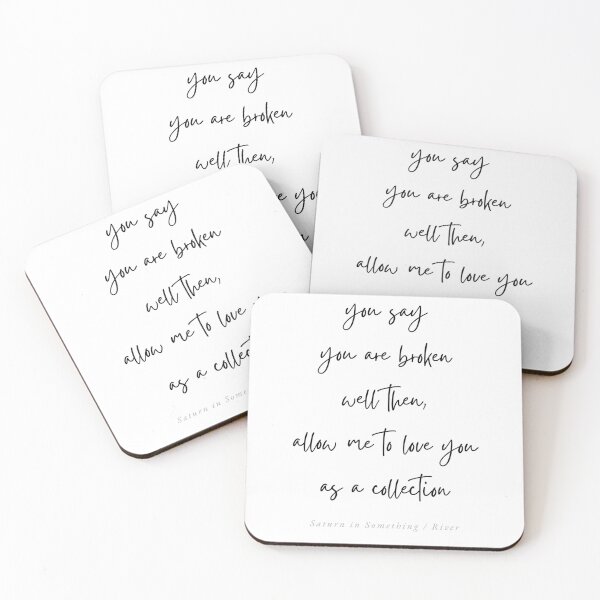 you say
you are broken
well then,
you
you say
you are broken
well then,
allow me to love you
you say
you are broken
well then,
allow me to love
as a collect
Saturn in Some
you say
you are broken
well then,
allow me to love you
as a collection
Saturn in Something / River